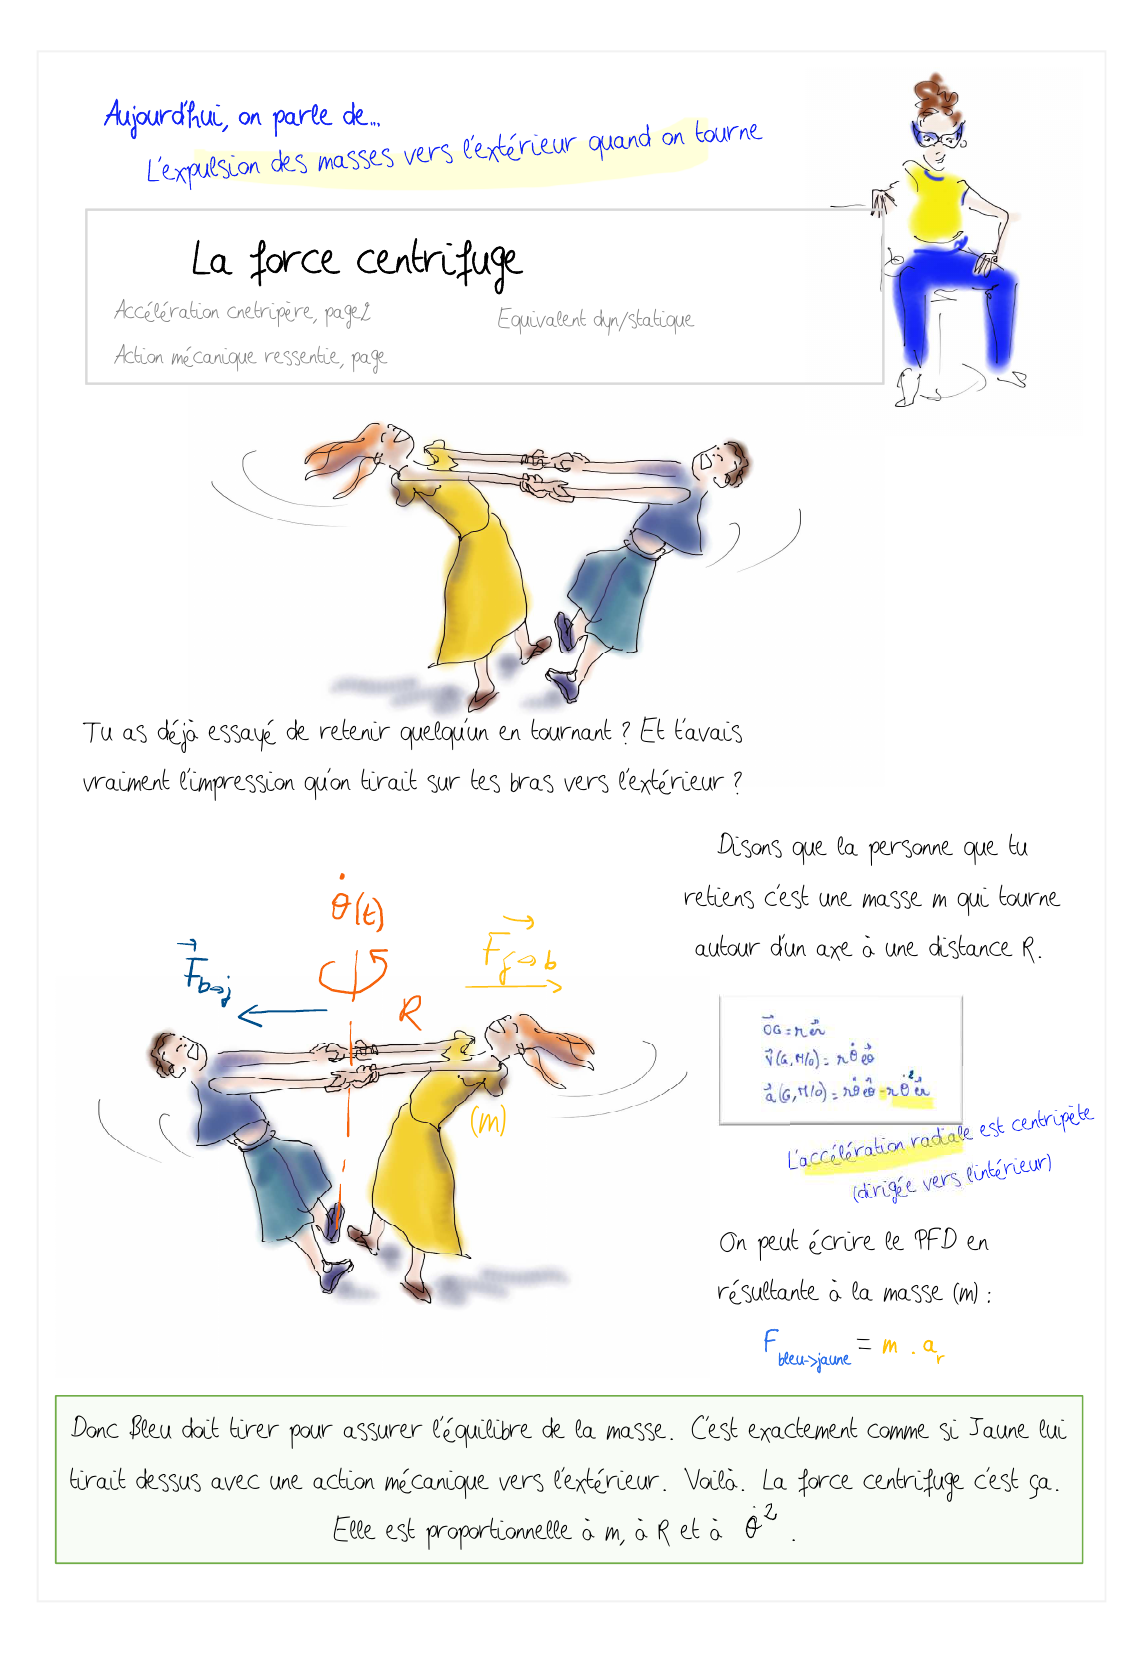 Aujourd'hui, on parle de...
L'expulsion des masses vers l'extérieur quand on tourne
La force centrifuge
Accélération cnetripère, page2
Equivalent dyn/statique
Action mécanique ressentie, page
Tu as déjà essayé de retenir quelqu'un en tournant ? Et t'avais
vraiment l'impression qu'on tirait sur tes bras vers l'extérieur ?
Disons que la personne que tu
retiens c'est une masse m qui tourne
autour d'un axe à une distance R.
θ̇(t)
F⃗b→j
F⃗j→b
R
(m)
O⃗G = r e⃗r
V⃗(G,M/0) = r θ̇ e⃗θ
a⃗(G,M/0) = r θ̈ e⃗θ - r θ̇² e⃗r
L'accélération radiale est centripète
(dirigée vers l'intérieur)
On peut écrire le PFD en
résultante à la masse (m) :
F bleu->jaune = m . ar
Donc Bleu doit tirer pour assurer l'équilibre de la masse. C'est exactement comme si Jaune lui
tirait dessus avec une action mécanique vers l'extérieur. Voilà. La force centrifuge c'est ça.
Elle est proportionnelle à m, à R et à θ̇² .